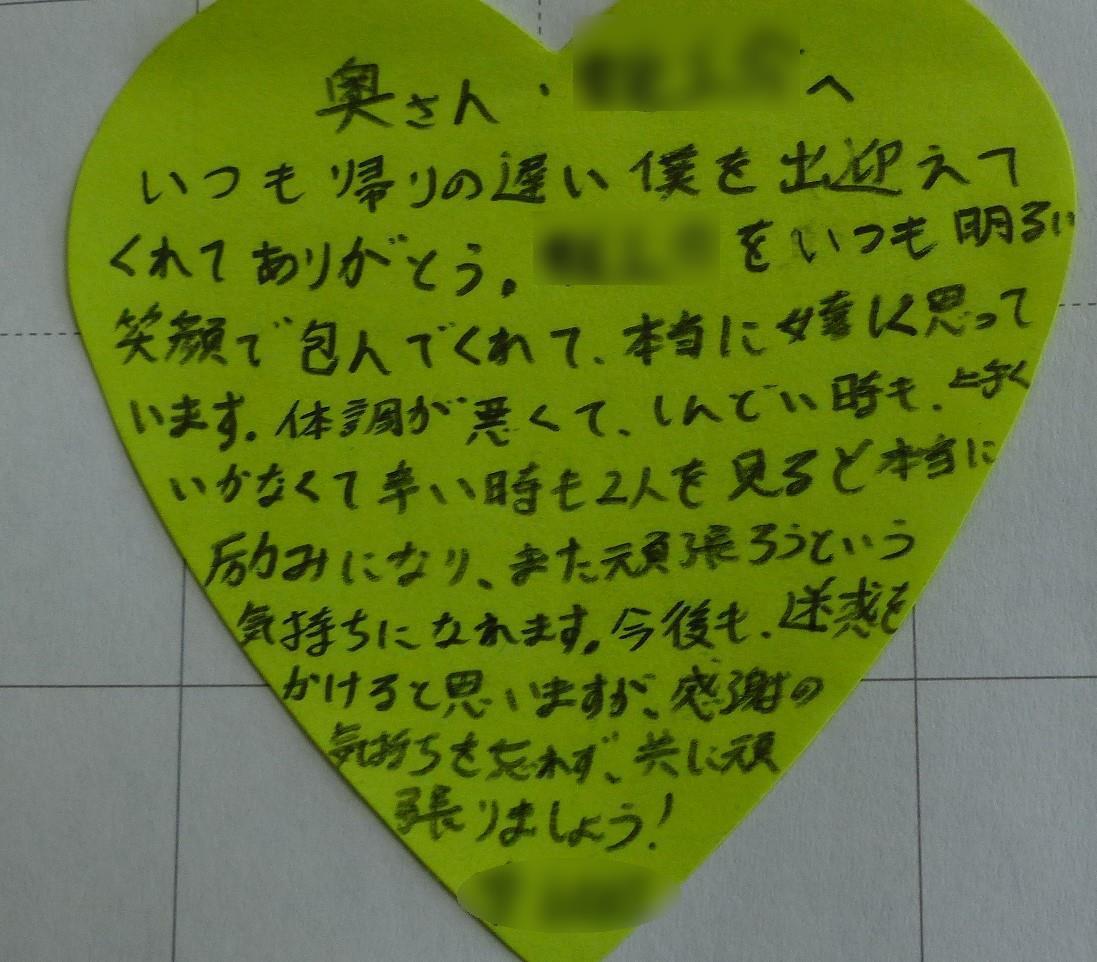 奥さん・へ
いつも帰りの遅い僕を出迎えて
くれてありがとう。をいつも明るい
笑顔で包んでくれて、本当に嬉しく思って
います。体調が悪くて、しんどい時も、上手く
いかなくて辛い時も2人を見ると本当に
励みになり、また頑張ろうという
気持ちになれます。今後も、迷惑を
かけると思いますが、感謝の
気持ちを忘れず、共に頑
張りましょう!